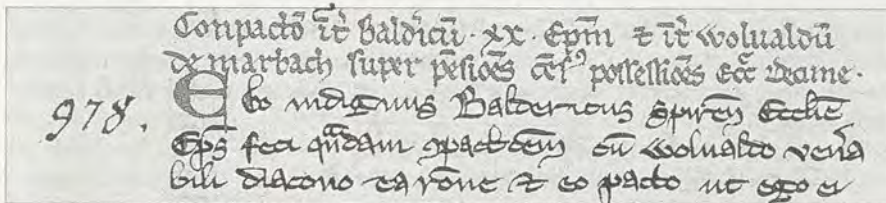 Conpactō īt̄ Baldīcū · xx · Ep̄m ⁊ īt̄ wolualdū
de marbach super pēsiōes cēsꝰ possessiōes ecc̄ decime ·
Ego indignus Baldericus Spiren̄ Ecclīe
978.
Ep̄s feci qn̄dam ꝯpactōēm cū wolualdo ven̄a
bili diacono ea rōne ⁊ eo pacto ut ego ei